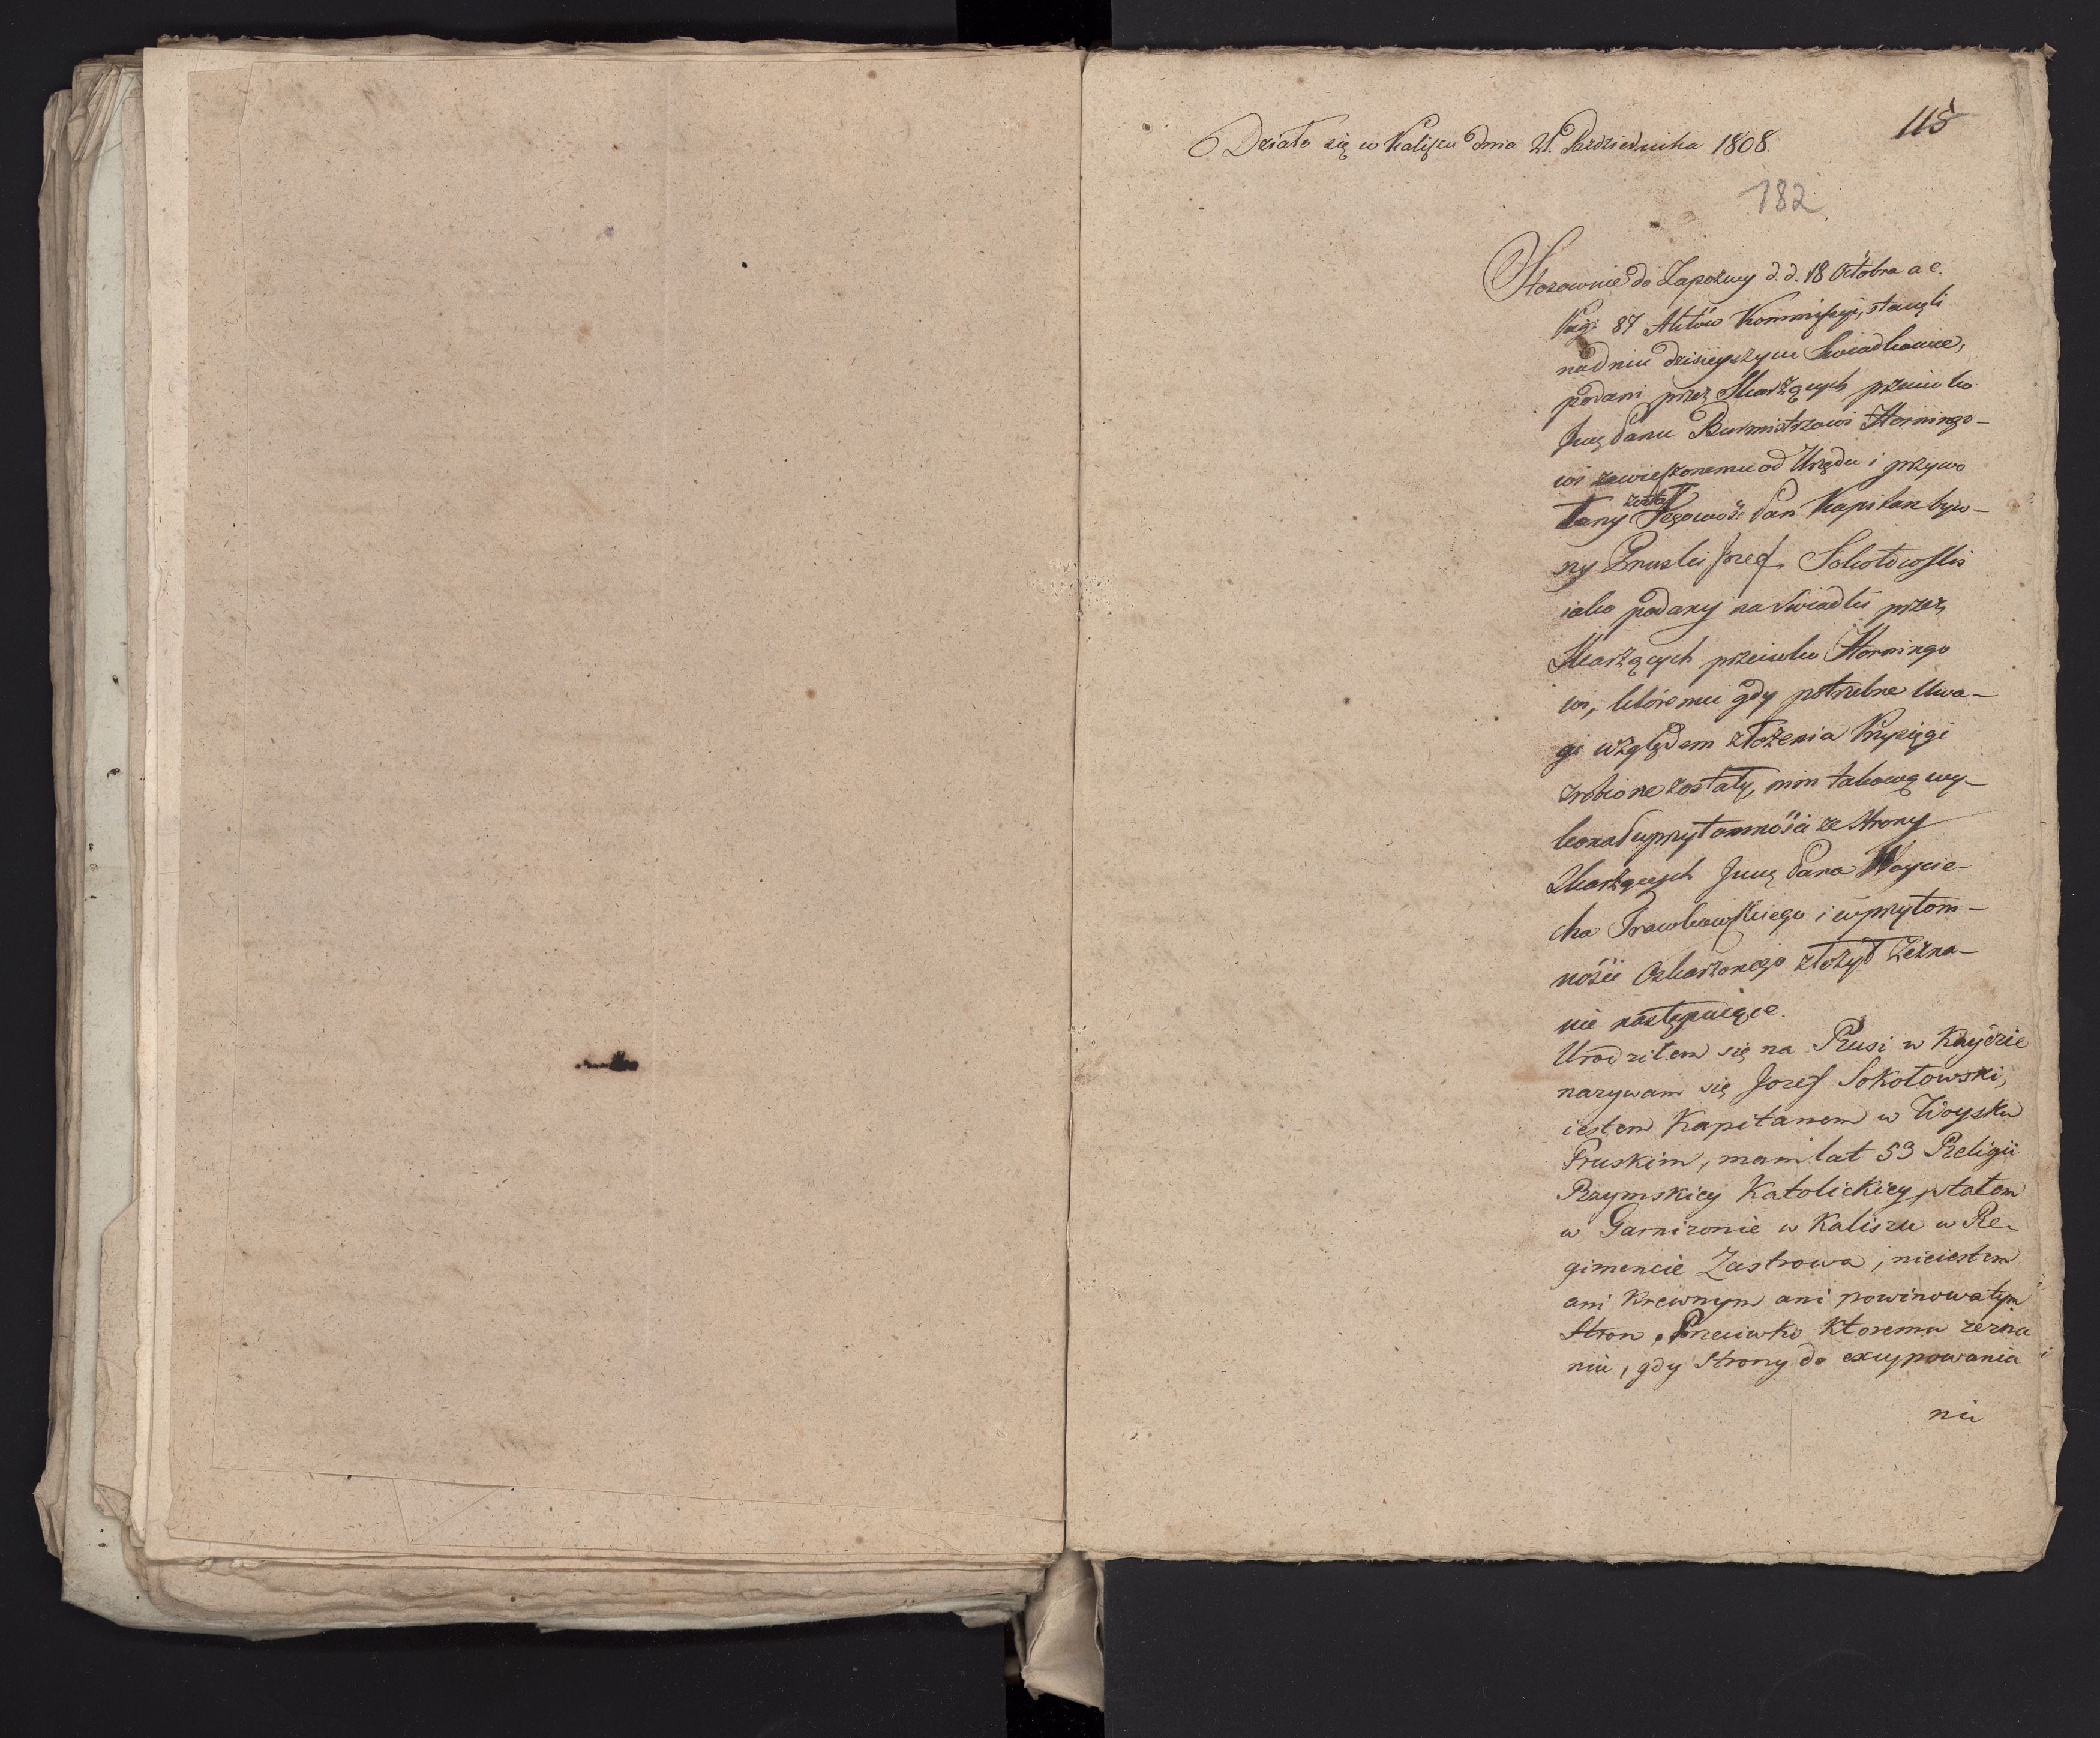 115
Działo się w Kaliszu dnia 21. Października 1808.
182
Stosownie do Zapozwy d. d. 18 Octobra a c.
Pag: 87 Aktów Kommissyi, stanęli
na dniu dzisieyszym Swiadkowie,
podani przez Skarżących przeciwko
Jmę Panu Burmistrzowi Horningo-
wi zawieszonemu od Urzędu i przywo
łany został Jegomość Pan Kapitan byw-
ny Pruski Jozef Sokołowski
iako podany na Swiadka przez
Skarżących przeciwko Horningo
wi, któremu gdy potrzebne Uwa-
gi względem złożenia Przysięgi
zrobione zostały, nim takową wy-
konał w przytomności ze Strony
Skarżących Jmę Pana Woycie-
cha Trawkowskiego i w przytom-
ności Oskarzonego złożył Zezna-
nie następuiące.
Urodziłem się na Rusi w Kaydzie
nazywam się Jozef Sokołowski,
iestem Kapitanem w Woysku
Pruskim, mam lat 53 Religii
Rzymskiey Katolickiey, stałem
w Garnizonie w Kaliszu w Re-
gimencie Zastrowa, nieiestem
ani Krewnym ani powinowatym
Stron, Przeciwko Ktoremu zezna
niu, gdy Strony do excypowania
nic